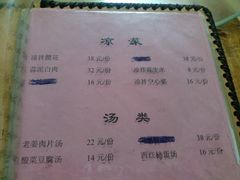 凉 菜
凉拌腰花 38 元/份 38 元/份
蒜泥白肉 32 元/份 凉拌花生米 8 元/份
16 元/份 凉拌空心菜 16 元/份
汤 类
老姜肉片汤 22 元/份 38 元/份
酸菜豆腐汤 14 元/份 西红柿蛋汤 16 元/份